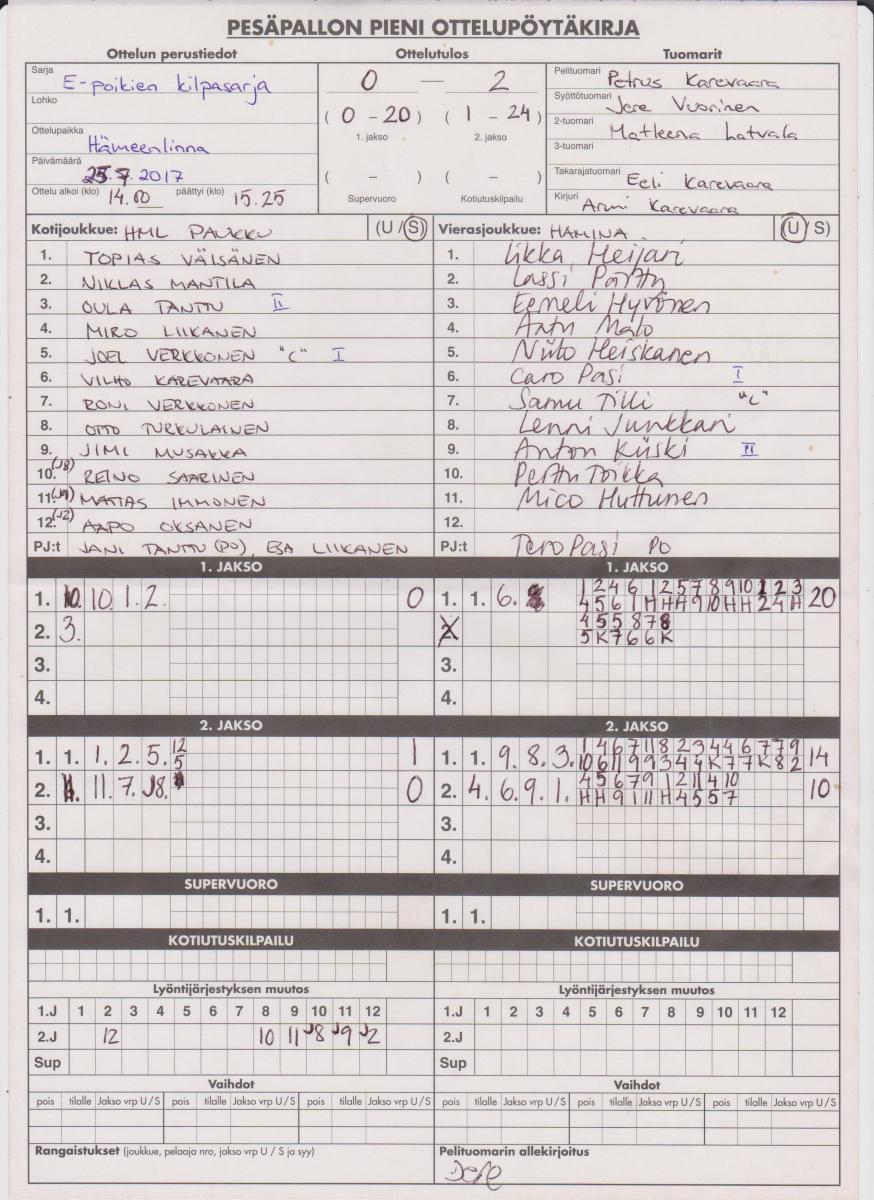 PESÄPALLON PIENI OTTELUPÖYTÄKIRJA
Ottelun perustiedot Ottelutulos Tuomarit
Sarja E-poikien kilpasarja
Lohko
Ottelupaikka Hämeenlinna
Päivämäärä 25.7.2017
Ottelu alkoi (klo) 14.00 päättyi (klo) 15.25
0 — 2
(0 - 20) (1 - 24)
1. jakso 2. jakso
( – ) ( – )
Supervuoro Kotiutuskilpailu
Pelituomari Petrus Karevaara
Syöttötuomari Jere Vuorinen
2-tuomari Matleena Latvala
3-tuomari
Takarajatuomari Eeli Karevaara
Kirjuri Armi Karevaara
Kotijoukkue: HML PAUKKU (U/S)
1. TOPIAS VÄISÄNEN
2. NIKLAS MANTILA
3. OULA TANTTU II
4. MIRO LIIKANEN
5. JOEL VERKKONEN "C" I
6. VILHO KAREVAARA
7. RONI VERKKONEN
8. OTTO TURKULAINEN
9. JIMI MUSAKKA
10. (J8) REINO SAARINEN
11. (J9) MATIAS IMMONEN
12. (J2) AAPO OKSANEN
PJ:t JANI TANTTU (PO), ESA LIIKANEN
Vierasjoukkue: HAMINA (U/S)
1. Iikka Heijari
2. Lassi Pärttu
3. Eemeli Hyvönen
4. Antu Mälö
5. Niilo Heiskanen
6. Caro Pasi I
7. Samu Tilli "C"
8. Lenni Junkkari
9. Anton Kiiski II
10. Perttu Toikka
11. Mico Huttunen
12.
PJ:t Tero Pasi PO
1. JAKSO 1. JAKSO
1. 10. 1. 2. 0
2. 3.
3.
4.
1. 1. 6. 1 2 4 6 1 2 5 7 8 9 10 1 2 3 20
4 5 6 1 H H H 9 10 H H 2 4 H
2. 4 5 5 8 7 8
5 K 7 6 6 K
3.
4.
2. JAKSO 2. JAKSO
1. 1. 1. 2. 5. 12 1
5
2. 11. 7. J8. 0
3.
4.
1. 1. 9. 8. 3. 1 4 6 7 11 8 2 3 4 4 6 7 7 9 14
10 6 11 9 9 3 4 4 K 7 7 K 8 2
2. 4. 6. 9. 1. 4 5 6 7 9 1 2 11 4 10 10
H H 9 1 11 H 4 5 5 7
3.
4.
SUPERVUORO SUPERVUORO
1. 1. 1. 1.
KOTIUTUSKILPAILU KOTIUTUSKILPAILU
Lyöntijärjestyksen muutos Lyöntijärjestyksen muutos
1.J 1 2 3 4 5 6 7 8 9 10 11 12 1.J 1 2 3 4 5 6 7 8 9 10 11 12
2.J 12 10 11 J8 J9 J2 2.J
Sup Sup
Vaihdot Vaihdot
pois tilalle Jakso vrp U/S pois tilalle Jakso vrp U/S pois tilalle Jakso vrp U/S pois tilalle Jakso vrp U/S pois tilalle Jakso vrp U/S pois tilalle Jakso vrp U/S
Rangaistukset (joukkue, pelaaja nro, jakso vrp U / S ja syy) Pelituomarin allekirjoitus